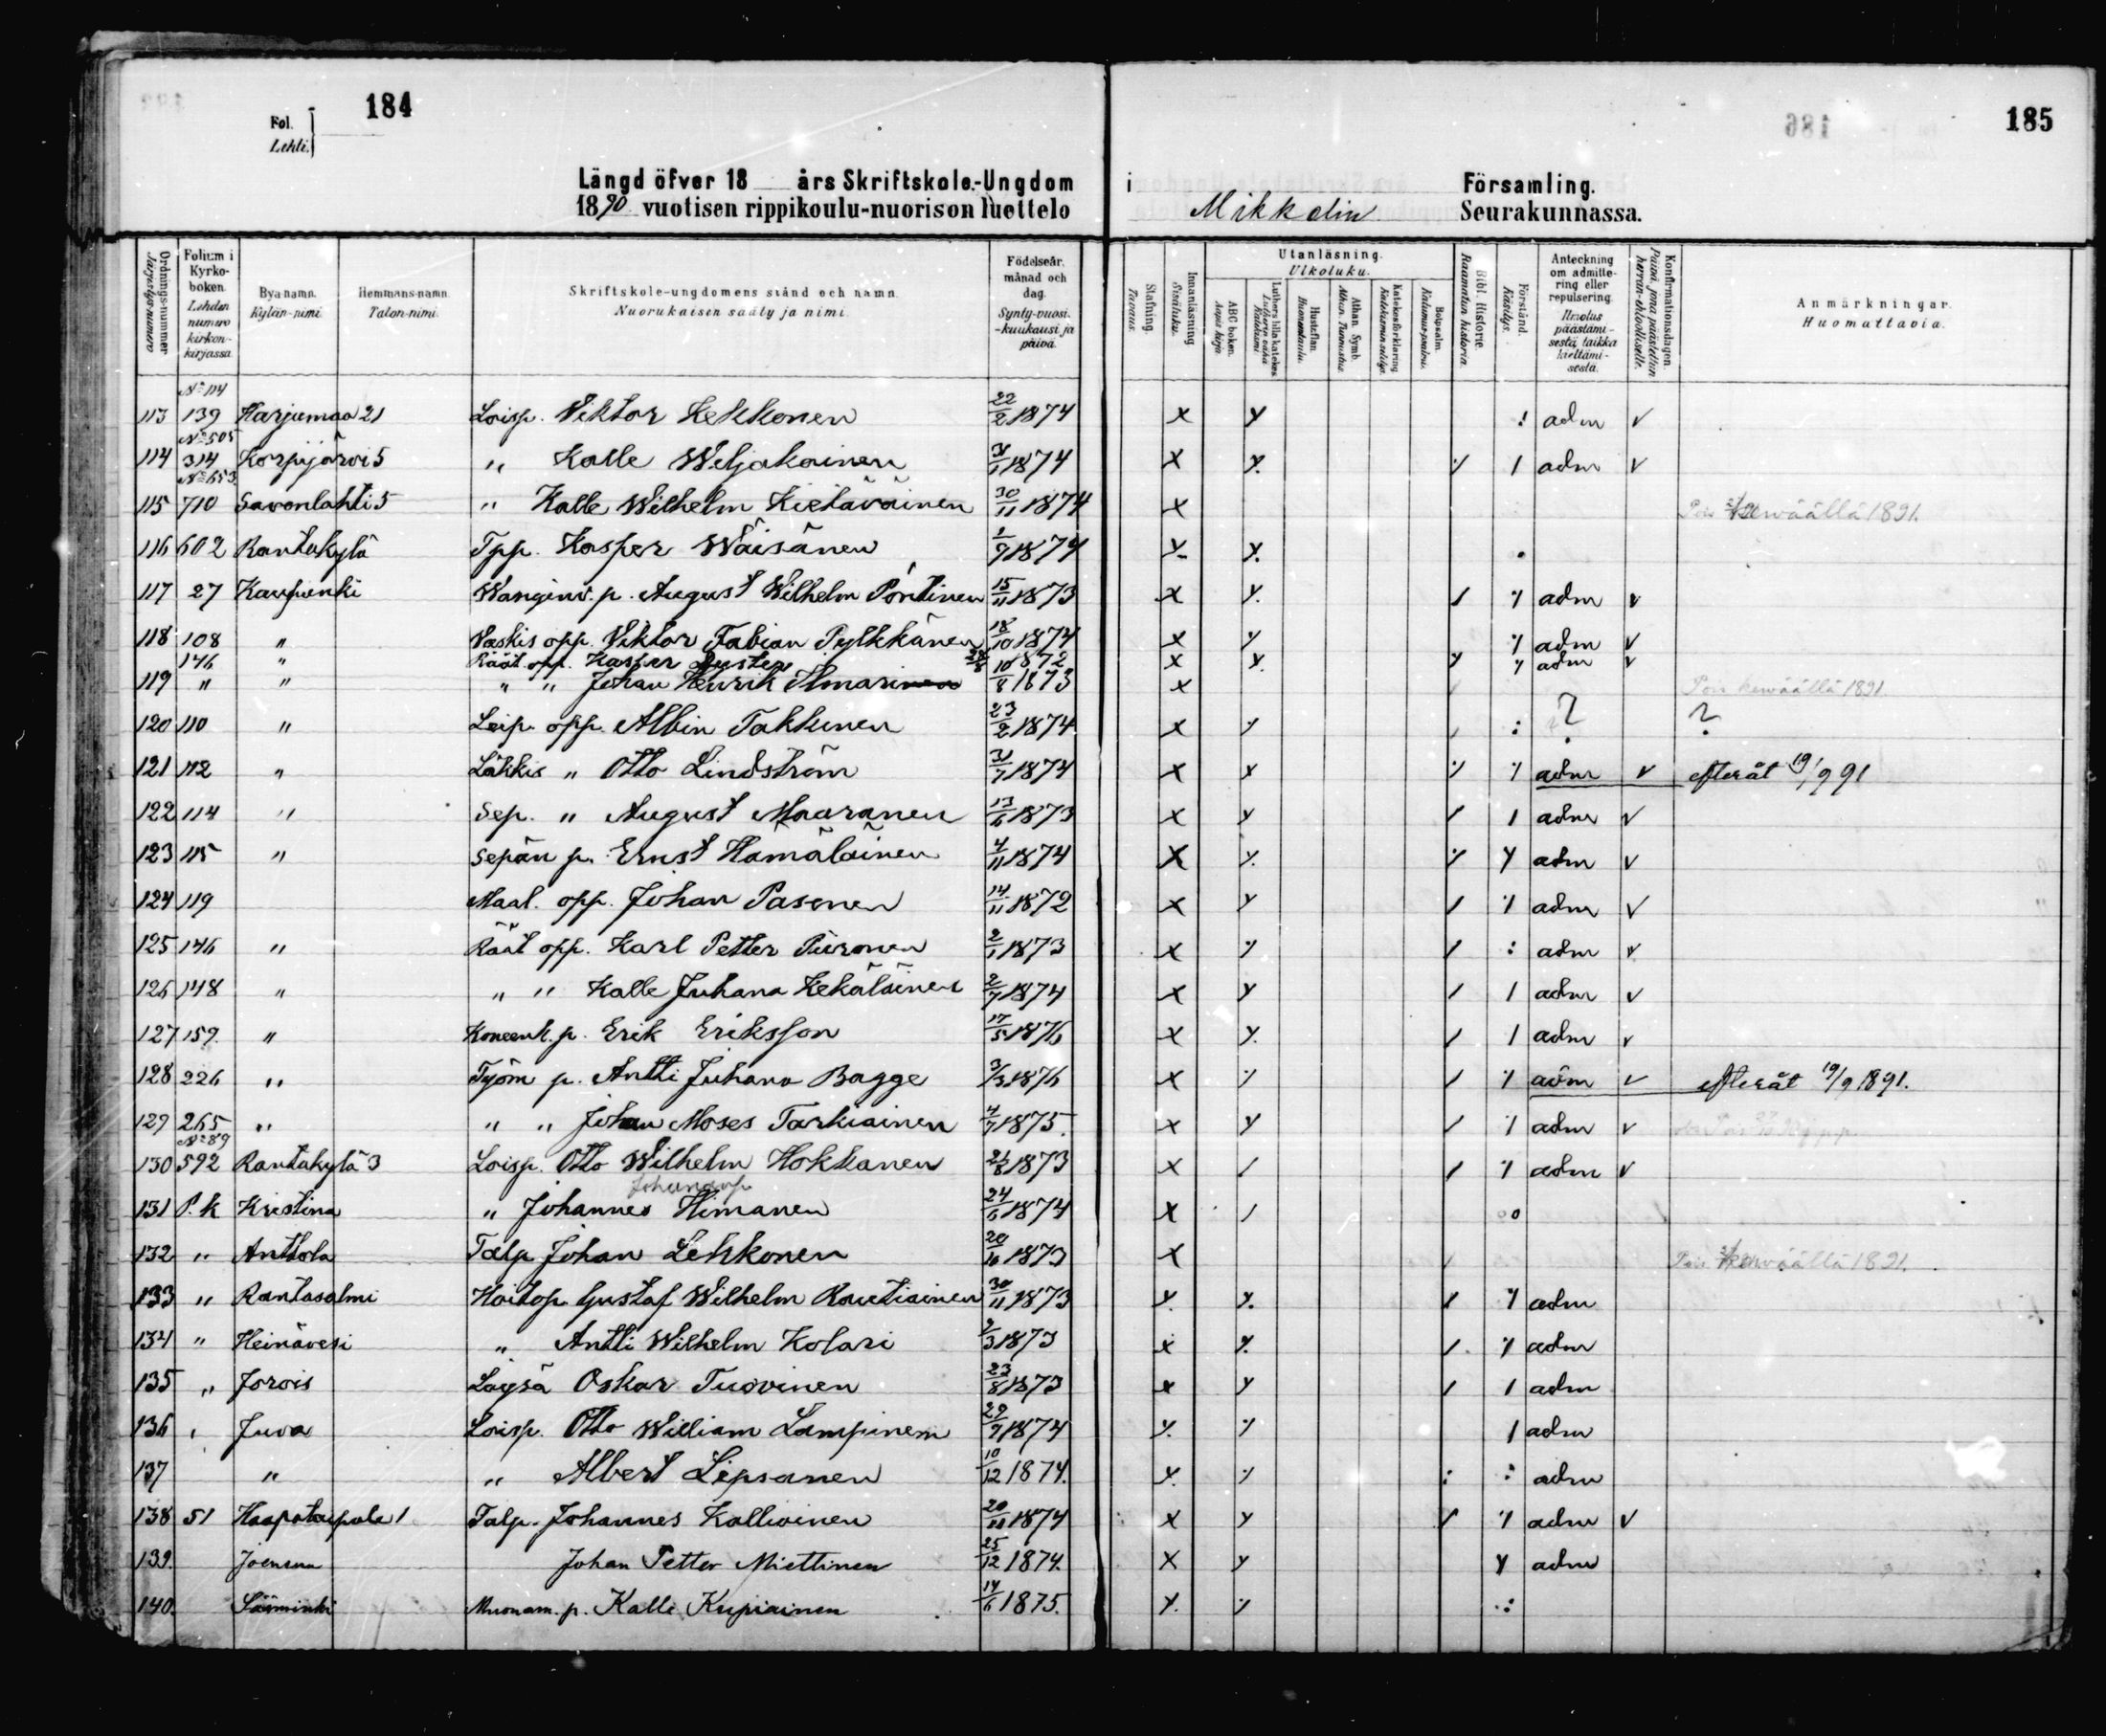 184
185
Fol.
Lehti.
Längd öfver 18 års Skriftskole-Ungdom i Församling.
1890 vuotisen rippikoulu-nuorison luettelo Mikkelin Seurakunnassa.
Ordnings-nummer Järjestys-numero
Folium i Kyrko-boken. Lehden numero kirkon-kirjassa
Bya namn. Kylän-nimi
Hemmans-namn. Talon-nimi.
Skriftskole-ungdomens stånd och namn. Nuorukaisen sääty ja nimi.
Födelseår, månad och dag. Synty-vuosi. -kuukausi ja päivä.
Stafning. Tavaus.
Innanläsning Sisäluku.
Utanläsning. Ulkoluku.
ABC boken. Aapis kirja
Luthers lilla katekes Lutherin vähä Katekismi
Hustaflan. Huoneentaulu.
Athan. Symb. Athan. Tunnustus
Katekesförklaring Katekismin selitys.
Botpsalm. Katumus-psalmi.
Bibl. Historie. Raamatun historia.
Förstånd. Käsitys.
Anteckning om admitte-ring eller repulsering.
päästämi-sestä, taikka kieltämi-sestä.
Konfirmationsdagen. Päivä, jona päästettiin herran-ehtoolliselle.
Anmärkningar. Huomattavia.
No 114
113 139 Harjumaa 21 Loisp. Viktor Kekkonen 22/2 1874 x y : adm v
No 505
114 314 Korpijärvi 5 " Kalle Weljakainen 1874 x y. ·/ 1 adm v
No 653
115 710 Savonlahti 5 " Kalle Wilhelm Kietäväinen 30/11 1874 x Pois kewäällä 1891.
116 602 Rantakylä Tpp. Kasper Wäisänen 1874 y. y. .
117 27 Kaupunki Wanginv. p. August Wilhelm Pöntinen 15/11 1873 x y. / ·/ adm v
118 108 " Vaskis opp. Viktor Fabian Pylkkänen 18/10 1874 x ·/ ·/ adm v
146 " Räät. opp. Kasper 1872 x y. y ·/ adm v
119 " " " " Johan Henrik Ilmarinen 10/8 1873 x Pois kewäällä 1891
120 110 " Leip. opp. Albin Takkunen 23/2 1874 x ·/ : ? ?
121 112 " Läkkis " Otto Lindström 31/7 1874 x y ·/ ·/ adm v efteråt 19/9 91
122 114 " Sep. " August Maaranen 13/6 1873 x y / 1 adm v
123 115 " Sepän p. Ernst Hämäläinen 4/11 1874 x y. ·/ y adm v
124 119 Maal. opp. Johan Pasonen 14/11 1872 x y / ·/ adm v
125 146 " Räät opp. Karl Petter Piironen 2/1 1873 x ·/ / : adm v
126 148 " " " Kalle Juhana Kekäläinen 2/7 1874 x y / 1 adm v
127 159. " Koneenk. p. Erik Eriksson 17/5 1876 x y. / 1 adm v
128 226 " Työm p. Antti Juhana Bagge 3/3 1876 x ·/ / ·/ adm v efteråt 19/9 1891.
129 265 " " " Johan Moses Tarkiainen 4/7 1875. x y / ·/ adm v
No 89
130 592 Rantakylä 3 Loisp. Otto Wilhelm Hokkanen 1873 x / / ·/ adm v
131 P. k Kristina " Johannes Himanen 24/6 1874 x /
132 " Anttola Talp Johan Lehkonen 1873 x Pois kewäällä 1891.
133 " Rantasalmi Hoitop. Gustaf Wilhelm Rautiainen 30/11 1873 y. y. / ·/ adm
134 " Heinävesi " Antti Wilhelm Kolari 2/3 1873 x y. / ·/ adm
135 " Jorois Löysä Oskar Tuovinen 23/8 1873 x y / 1 adm
136 " Juva Loisp. Otto William Lampinen 29/9 1874 y. ·/ 1 adm
137 " " Albert Lipsanen 10/12 1874. y. ·/ : : adm
138 51 Haapataipale 1 Talp. Johannes Kallioinen 1874 x y y ·/ adm v
139. Joensuu Johan Petter Miettinen 25/12 1874. x y y adm
140. Sääminki Muonam. p. Kalle Kupiainen 14/6 1875. y. ·/ :